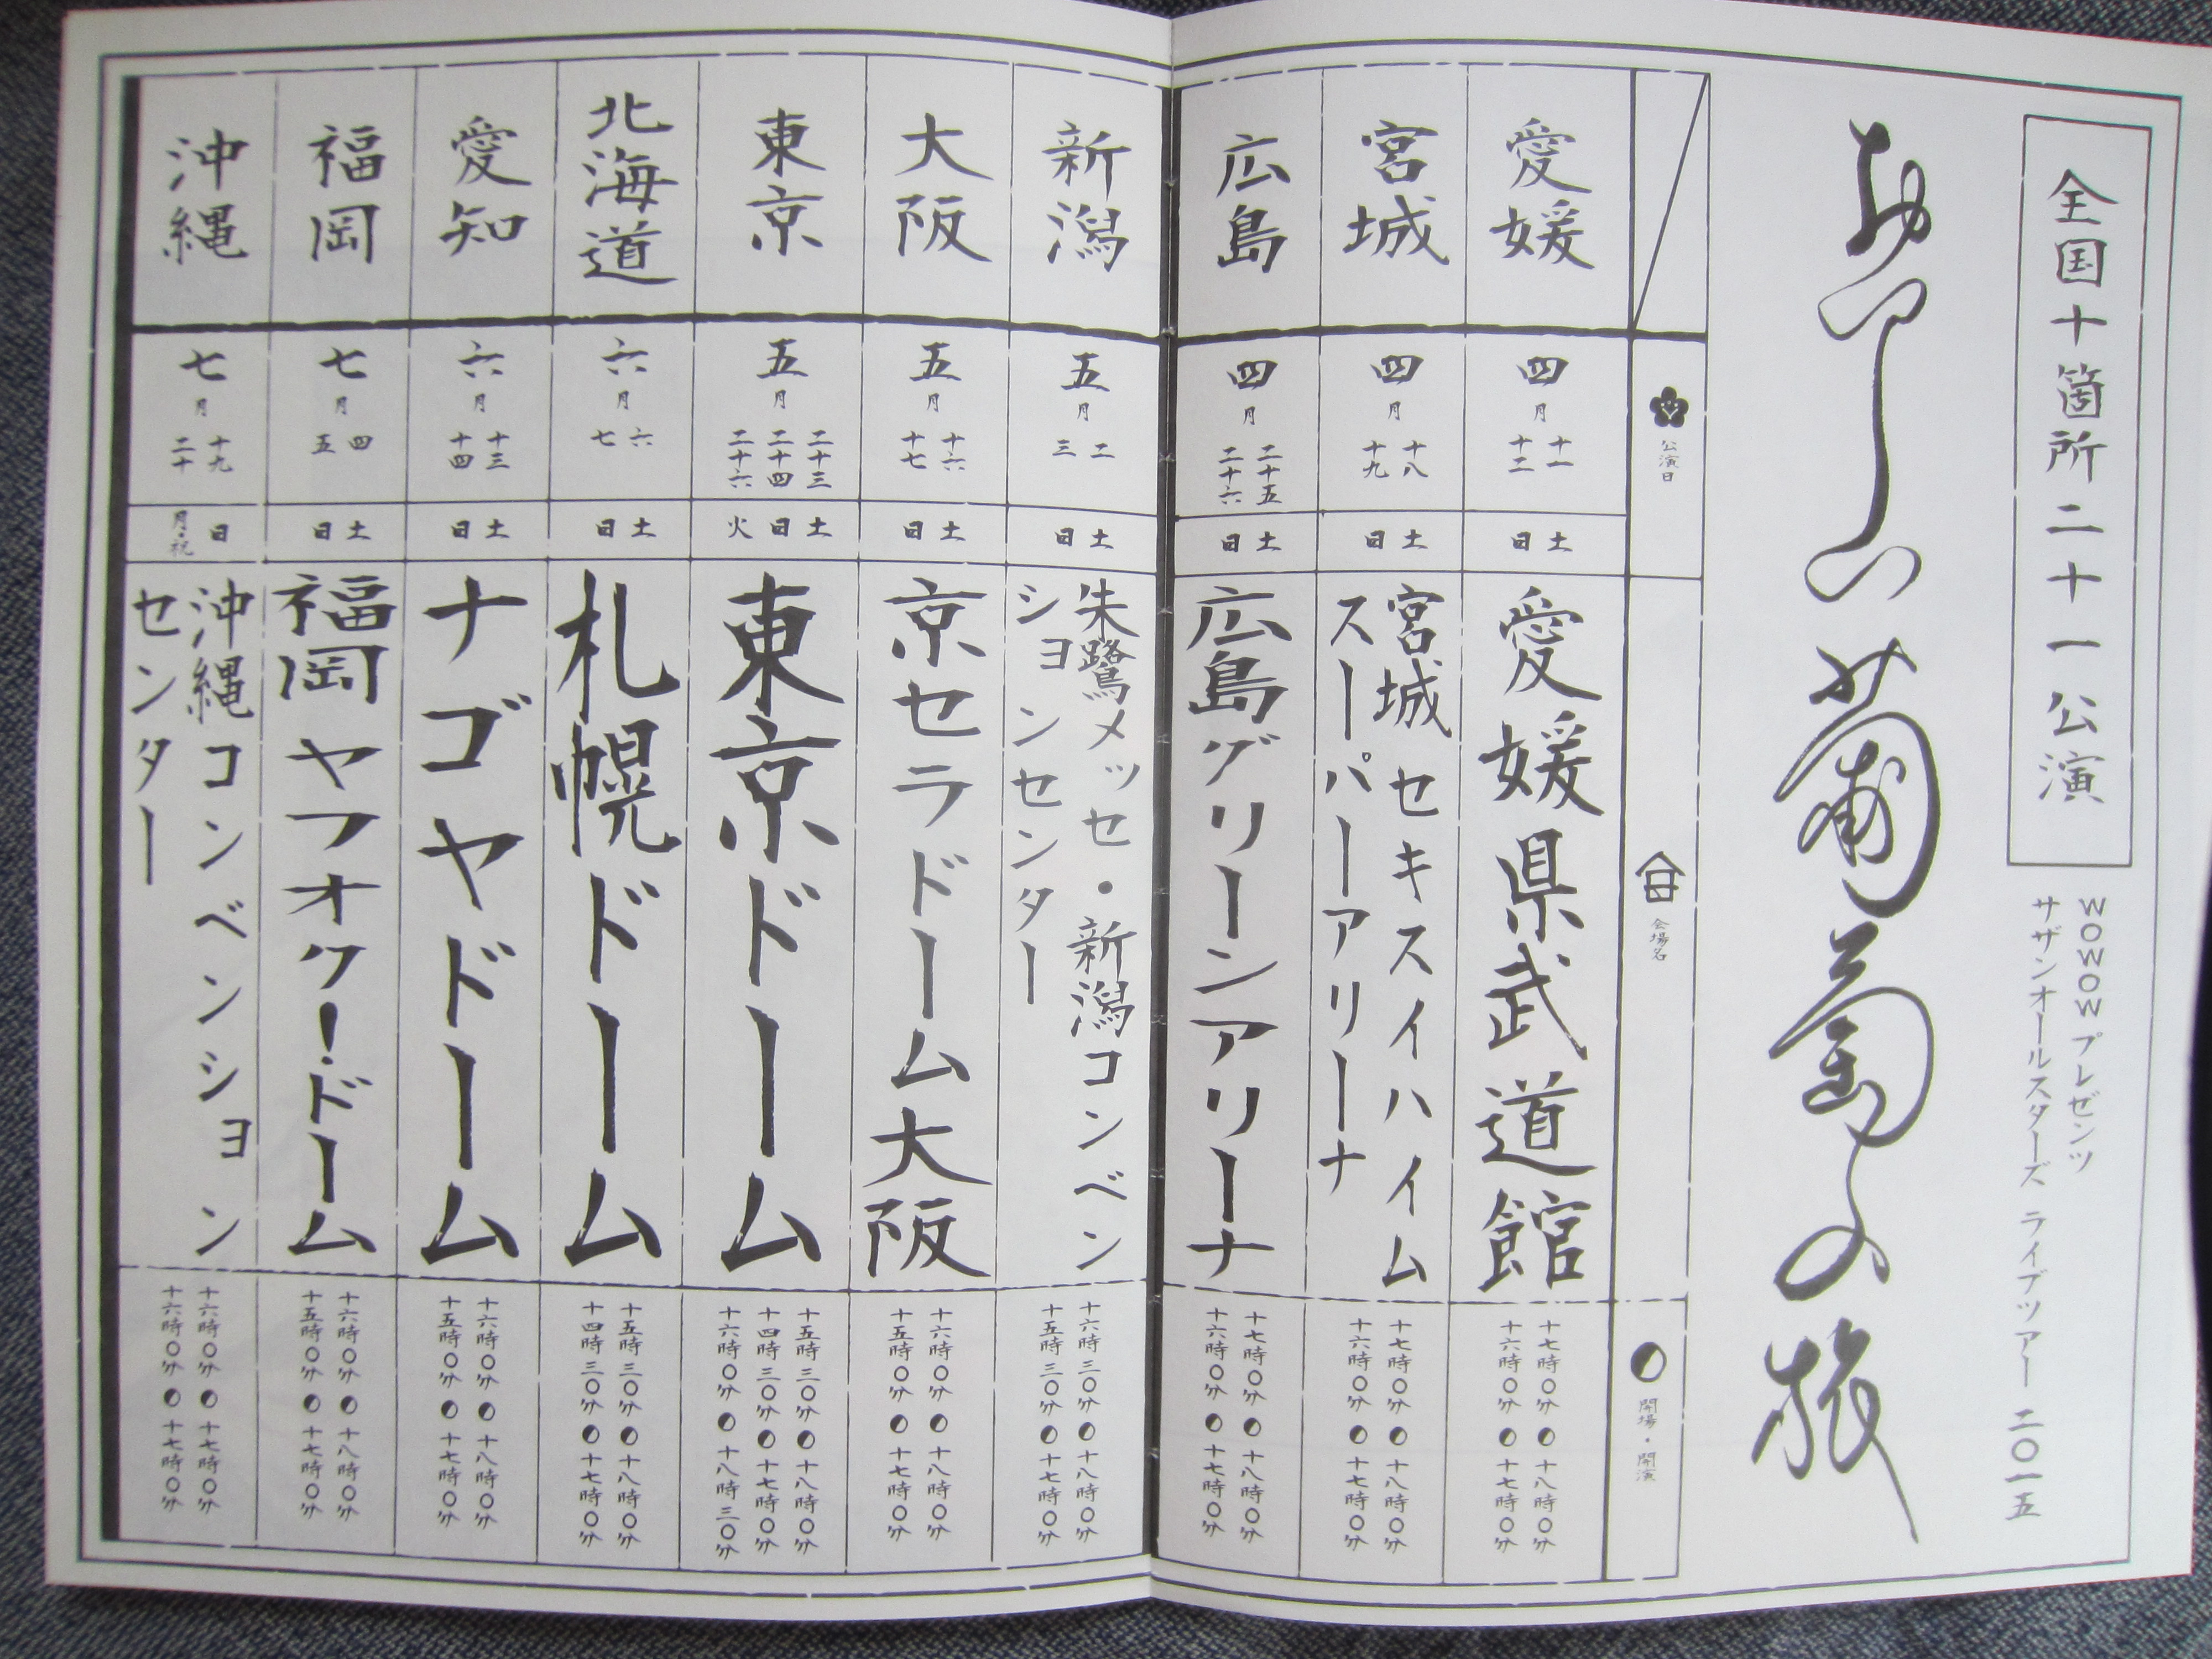 全国十箇所二十一公演
WOWOWプレゼンツ
サザンオールスターズ ライブツアー 二〇一五
おいしい葡萄の旅
公演日
会場名
開場・開演
愛媛
四月
十一
十二
土
日
愛媛県武道館
十七時〇分 十八時〇分
十六時〇分 十七時〇分
宮城
四月
十八
十九
土
日
宮城セキスイハイム
スーパーアリーナ
十七時〇分 十八時〇分
十六時〇分 十七時〇分
広島
四月
二十五
二十六
土
日
広島グリーンアリーナ
十七時〇分 十八時〇分
十六時〇分 十七時〇分
新潟
五月
二
三
土
日
朱鷺メッセ・新潟コンベン
ションセンター
十六時三〇分 十八時〇分
十五時三〇分 十七時〇分
大阪
五月
十六
十七
土
日
京セラドーム大阪
十六時〇分 十八時〇分
十五時〇分 十七時〇分
東京
五月
二十三
二十四
二十六
土
日
火
東京ドーム
十五時三〇分 十八時〇分
十四時三〇分 十七時〇分
十六時〇分 十八時三〇分
北海道
六月
六
七
土
日
札幌ドーム
十五時三〇分 十八時〇分
十四時三〇分 十七時〇分
愛知
六月
十三
十四
土
日
ナゴヤドーム
十六時〇分 十八時〇分
十五時〇分 十七時〇分
福岡
七月
四
五
土
日
福岡ヤフオク!ドーム
十六時〇分 十八時〇分
十五時〇分 十七時〇分
沖縄
七月
十九
二十
日
月・祝
沖縄コンベンション
センター
十六時〇分 十七時〇分
十六時〇分 十七時〇分